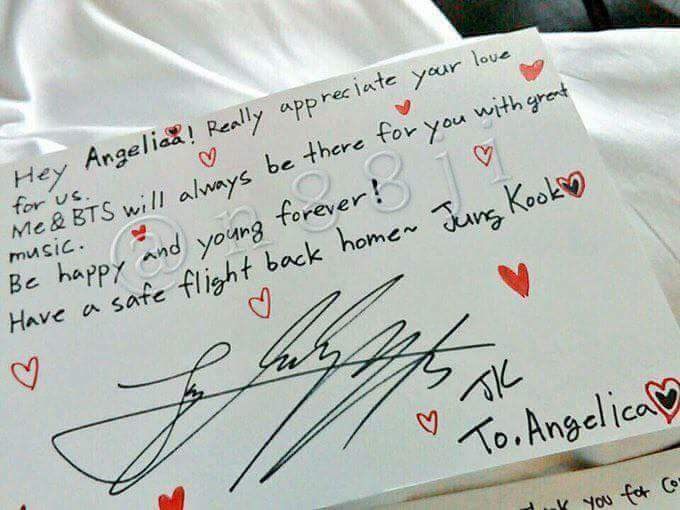 Hey Angelica! Really appreciate your love
for us.
Me & BTS will always be there for you with great
music.
Be happy and young forever!
Have a safe flight back home~ Jung Kook
JK
To. Angelica
you for
@n88ji